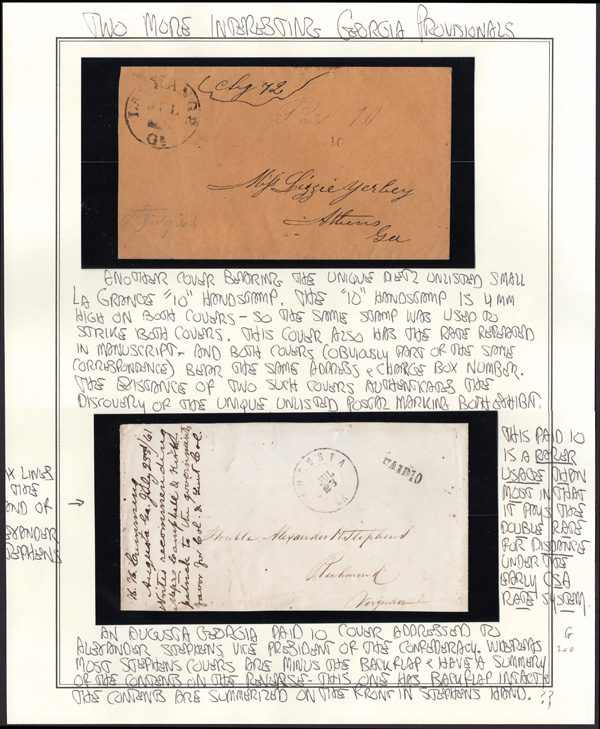 TWO MORE INTERESTING GEORGIA PROVISIONALS
chg 72
LA GRANGE
JUL
GA
Paid 10
10
Miss Lizzie Yerbey
Athens
Ga
ENOTHER COVER BEARING THE UNIQUE DIETZ UNLISTED SMALL
LA GRANGE "10" HANDSTAMP. THE "10" HANDSTAMP IS 4 MM
HIGH ON BOTH COVERS - SO THE SAME STAMP WAS USED TO
STRIKE BOTH COVERS. THIS COVER ALSO HAS THE RATE REPEATED
IN MANUSCRIPT - AND BOTH COVERS (OBVIOUSLY PART OF THE SAME
CORRESPONDENCE) BEAR THE SAME ADDRESS & CHARGE BOX NUMBER.
THE EXISTANCE OF TWO SUCH COVERS AUTHENTICATES THE
DISCOVERY OF THE UNIQUE UNLISTED POSTAL MARKING BOTH EXHIBIT.
LINES
THE
AND OF
EXANDER
STEPHENS
H. H. Cumming
Augusta Ga. July 22nd/61
Writes recommending
Campbell & Kirk
patrick to the governments
favor for Col. & Lieut Col.
AUGUSTA
GA
JUL
23
PAID 10
Honble Alexander H Stephens
Richmond
Virginia
THIS PAID 10
IS A RARER
USAGE THAN
MOST IN THAT
IT PAYS THE
DOUBLE RATE
FOR DISTANCE
UNDER THE
EARLY CSA
RATE SYSTEM.
AN AUGUSTA GEORGIA PAID 10 COVER ADDRESSED TO
ALEXANDER STEPHENS VICE PRESIDENT OF THE CONFEDERACY. WHEREAS
MOST STEPHENS COVERS ARE MINUS THE BACKFLAP & HAVE A SUMMARY
OF THE CONTENTS ON THE REVERSE - THIS ONE HAS BACKFLAP INTACT &
THE CONTENTS ARE SUMMERIZED ON THE FRONT IN STEPHENS HAND. ??
G